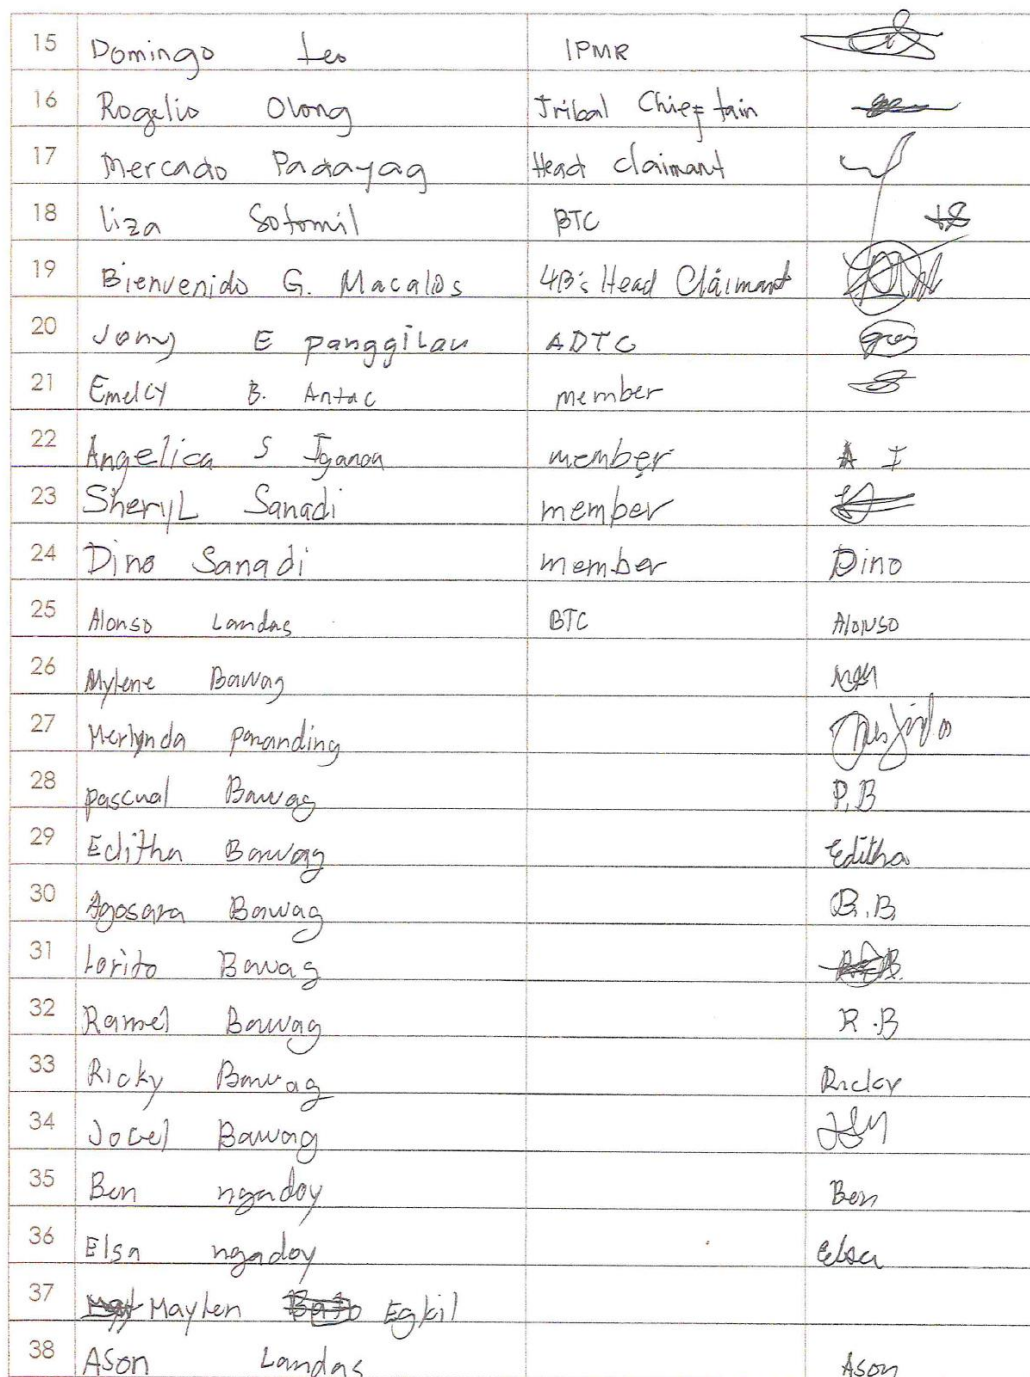 15 Domingo Leo IPMR
16 Rogelio Olong Tribal Chieftain
17 Mercado Padayag Head claimant
18 Liza Sotomil BTC
19 Bienvenido G. Macalos 4B's Head Claimant
20 Jony E panggilau ADTC
21 Emelcy B. Antac member
22 Angelica S Iganon member A I
23 Sheryl Sanadi member
24 Dino Sanadi member Dino
25 Alonso Landas BTC Alonso
26 Mylene Bawag
27 Merlynda pananding
28 pascual Bawag P.B
29 Editha Bawag Editha
30 Agosara Bawag B.B
31 Lorito Bawag
32 Ramel Bawag R.B
33 Ricky Bawag Ricky
34 Jocel Bawag
35 Ben ngadoy Ben
36 Elsa ngadoy elsa
37 Maylen Egkil
38 Ason Landas Ason